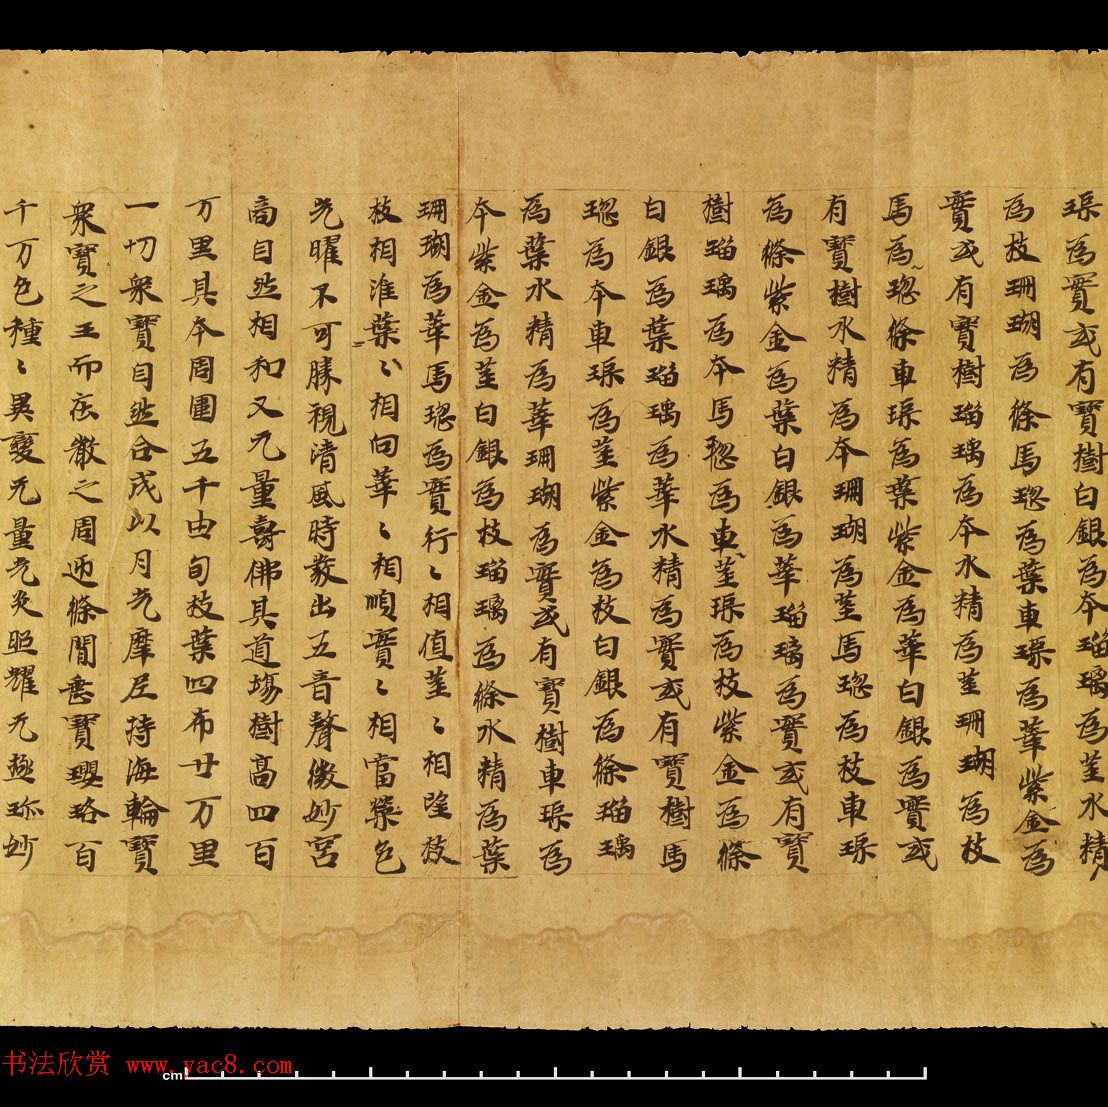 琭為實或有寶樹白銀為本瑠璃為莖水精
為枝珊瑚為條馬瑙為葉車璖為華紫金為
實或有寶樹瑠璃為本水精為莖珊瑚為枝
馬為瑙條車璖為葉紫金為華白銀為實或
有寶樹水精為本珊瑚為莖馬瑙為枝車璖
為條紫金為葉白銀為華瑠璃為實或有寶
樹瑠璃為本馬瑙為車莖璖為枝紫金為條
白銀為葉瑠璃為華水精為實或有寶樹馬
瑙為本車璖為莖紫金為枝白銀為條瑠璃
為葉水精為華珊瑚為實或有寶樹車璖為
本紫金為莖白銀為枝瑠璃為條水精為葉
珊瑚為華馬瑙為實行〻相值莖〻相望枝
枝相准葉〻相向華〻相順實〻相當榮色
光曜不可勝視清風時發出五音聲微妙宮
商自然相和又无量壽佛其道場樹高四百
万里其本周圍五千由旬枝葉四布廿万里
一切衆寶自然合成以月光摩尼持海輪寶
衆寶之王而莊嚴之周迊條間垂寶瓔珞百
千万色種〻異變无量光炎照耀无極珎妙
书法欣赏 www.yac8.com
cm